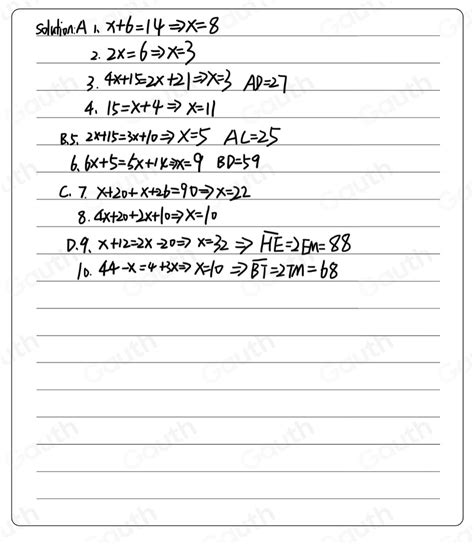 Solution: A 1. x+6=14⇒x=8
2. 2x=6⇒x=3
3. 4x+15=2x+21⇒x=3 AD=27
4. 15=x+4⇒x=11
B.5. 2x+15=3x+10⇒x=5 AC=25
6. 6x+5=5x+14⇒x=9 BD=59
C. 7. x+20+x+26=90⇒x=22
8. 4x+20+2x+10⇒x=10
D.9. x+12=2x-20⇒x=32⇒HE=2EM=88
10. 44-x=4+3x⇒x=10⇒BT=2TM=68